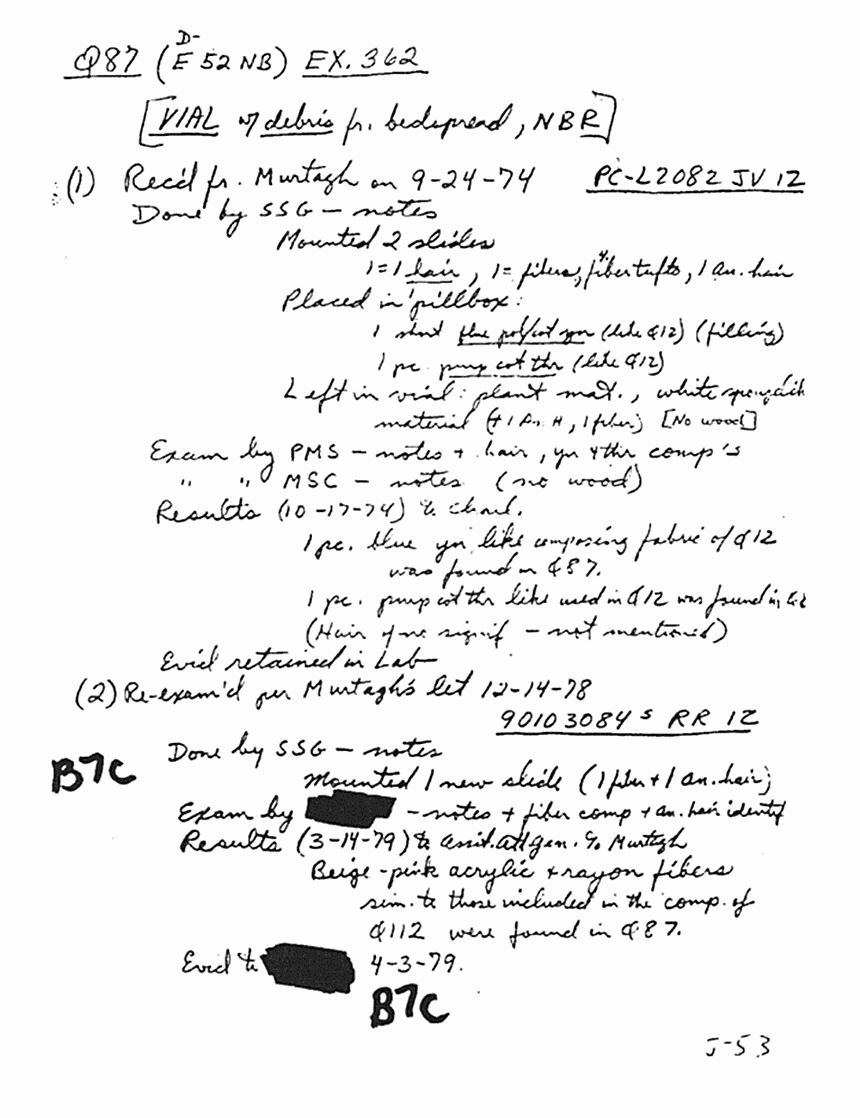 Q87 (D-E 52 NB) EX. 362
[VIAL w/ debris fr. bedspread, NBR]
(1) Rec'd fr. Murtagh on 9-24-74 PC-L2082 JV 12
Done by SSG – notes
Mounted 2 slides
1 = 1 hair, 1 = fibers, + fiber tufts, 1 an. hair
Placed in pillbox:
1 short blue pol/cot yn (like Q12) (filling)
1 pc. purp cot thr (like Q12)
Left in vial: plant mat., white
material (+ 1 An. H, 1 fiber) [No wood]
Exam by PMS – notes + hair, yn + thr comp's
" " MSC – notes (no wood)
Results (10-17-74) to
1 pc. blue yn like composing fabric of Q12
was found in Q87.
1 pc. purp cot thr like used in Q12 was found in
(Hair of no signif – not mentioned)
Evid retained in Lab
(2) Re-exam'd per Murtagh's let 12-14-78
90103084 S RR 12
Done by SSG – notes
B7C
Mounted 1 new slide (1 fiber + 1 an. hair)
Exam by – notes + fiber comp + an. hair identif
Results (3-14-79) to assit. att gen. % Murtagh
Beige-pink acrylic + rayon fibers
sim. to those included in the comp. of
Q112 were found in Q87.
Evid to 4-3-79.
B7C
J-53